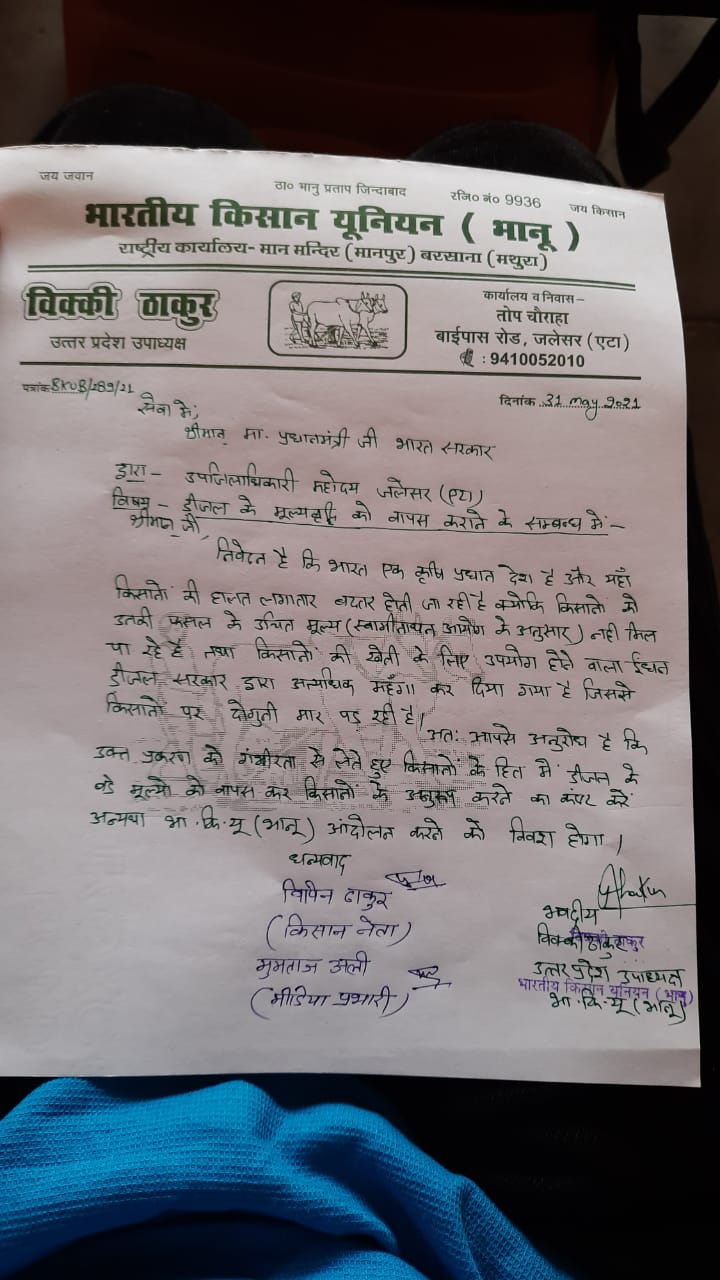 जय जवान
ठा० भानु प्रताप जिन्दाबाद
रजि० नं० 9936
जय किसान
भारतीय किसान यूनियन ( भानू )
राष्ट्रीय कार्यालय- मान मन्दिर (मानपुर) बरसाना (मथुरा)
विक्की ठाकुर
उत्तर प्रदेश उपाध्यक्ष
कार्यालय व निवास –
तोप चौराहा
बाईपास रोड, जलेसर (एटा)
: 9410052010
पत्रांक BKUB/289/21
दिनांक 31 may 2021
सेवा में,
श्रीमान् मा. प्रधानमंत्री जी भारत सरकार
द्वारा – उपजिलाधिकारी महोदय जलेसर (एटा)
विषय – डीजल के मूल्यवृद्धि को वापस कराने के सम्बन्ध में –
श्रीमान् जी,
निवेदन है कि भारत एक कृषि प्रधान देश है और यहाँ
किसानों की हालत लगातार बदतर होती जा रही है क्योकि किसानों को
उनकी फसल के उचित मूल्य (स्वामीनाथन आयोग के अनुसार) नही मिल
पा रहे हैं तथा किसानों की खेती के लिए उपयोग होने वाला ईंधन
डीजल सरकार द्वारा अत्यधिक महँगा कर दिया गया है जिससे
किसानों पर दोगुनी मार पड़ रही है।
अतः आपसे अनुरोध है कि
उक्त प्रकरण को गंभीरता से लेते हुए किसानों के हित में डीजल के
बडे मूल्यो को वापस कर किसानों के अनुरूप करने का कष्ट करें
अन्यथा भा.कि.यू (भानू) आंदोलन करने को विवश होगा।
धन्यवाद
विपिन ठाकुर
(किसान नेता)
मुमताज अली
(मीडिया प्रभारी)
भवदीय
विक्की ठाकुर
उत्तर प्रदेश उपाध्यक्ष
भारतीय किसान यूनियन (भानू)
भा.कि.यू (भानू)